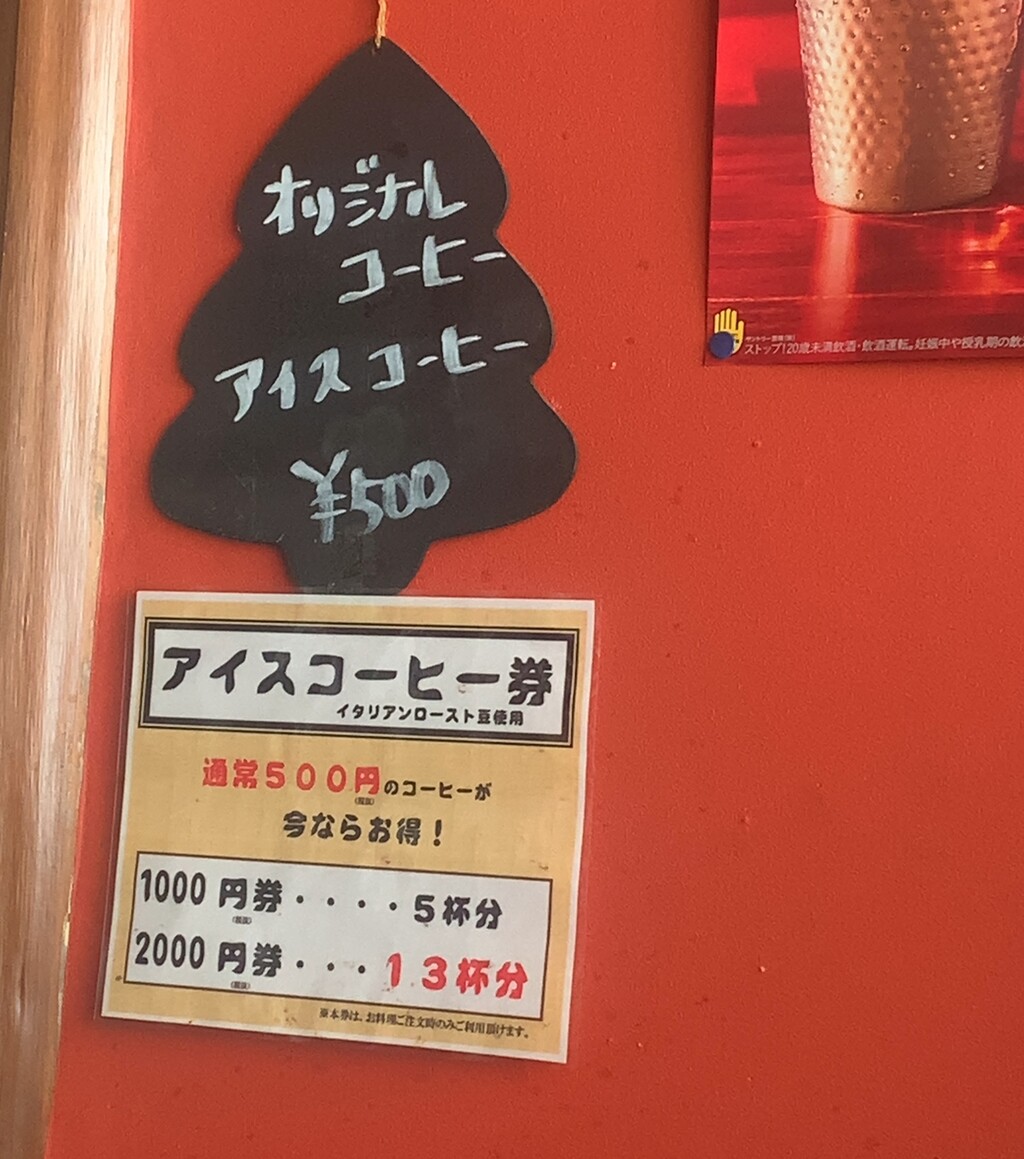 オリジナル
コーヒー
アイスコーヒー
¥500
ストップ!20歳未満飲酒・飲酒運転。妊娠中や授乳期の飲
アイスコーヒー券
イタリアンロースト豆使用
通常500円のコーヒーが
(税抜)
今ならお得!
1000円券・・・・5杯分
(税抜)
2000円券・・・13杯分
(税抜)
※本券は、お料理ご注文時のみご利用頂けます。